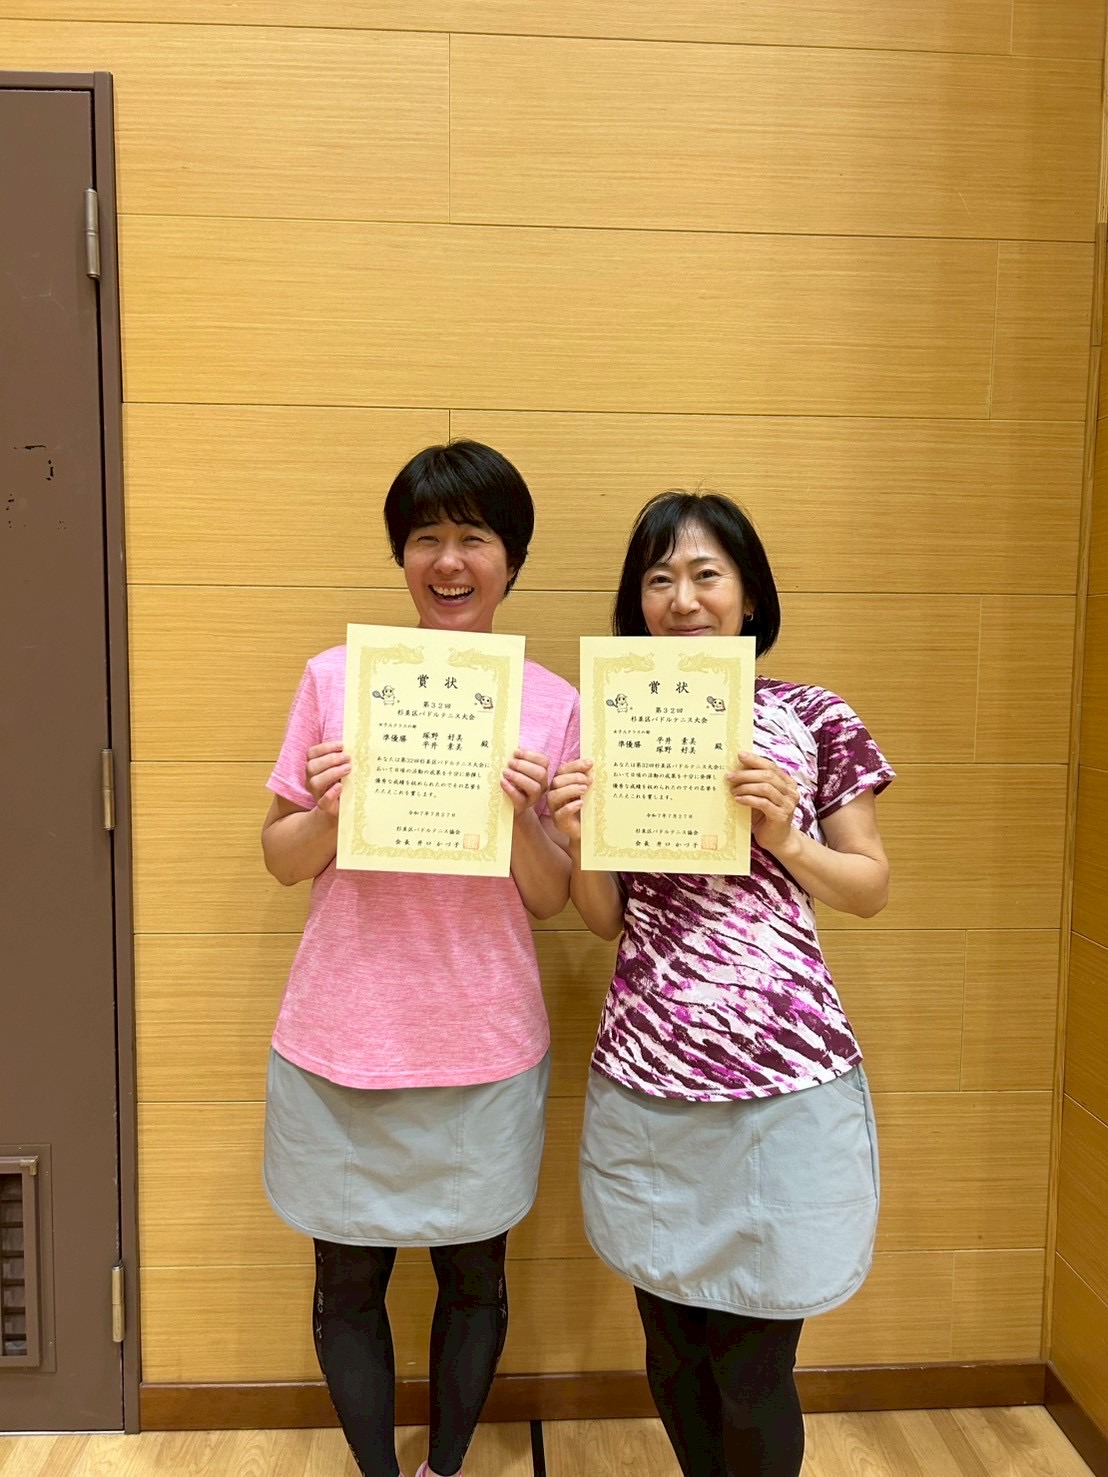 賞状
第32回
杉並区パドルテニス大会
女子Aクラスの部
準優勝 塚野 好美
平井 素美 殿
あなたは第32回杉並区パドルテニス大会に
おいて日頃の活動の成果を十分に発揮し
優秀な成績を収められたのでその名誉を
たたえこれを賞します。
令和7年7月27日
杉並区パドルテニス協会
会長 井口 かつ子
賞状
第32回
杉並区パドルテニス大会
女子Aクラスの部
準優勝 平井 素美
塚野 好美 殿
あなたは第32回杉並区パドルテニス大会に
おいて日頃の活動の成果を十分に発揮し
優秀な成績を収められたのでその名誉を
たたえこれを賞します。
令和7年7月27日
杉並区パドルテニス協会
会長 井口 かつ子